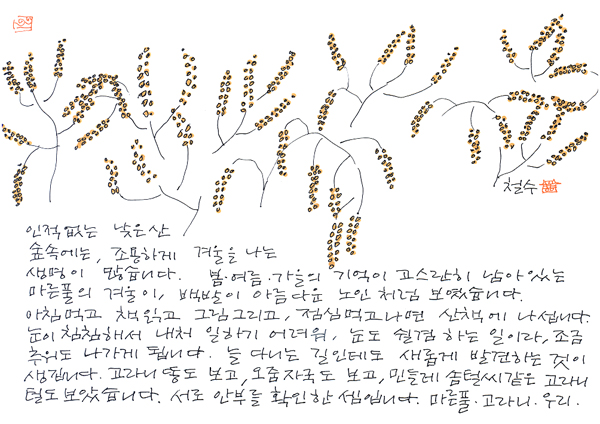 철수
인적없는 낮은산
숲속에는, 조용하게 겨울을 나는
생명이 많습니다. 봄·여름·가을의 기억이 고스란히 남아있는
마른풀의 겨울이, 백발이 아름다운 노인처럼 보였습니다.
아침먹고 책읽고 그림그리고, 점심먹고나면 산책에 나섭니다.
눈이 침침해서 내처 일하기 어려워, 눈도 쉴겸 하는 일이라, 조금
추워도 나가게 됩니다. 늘 다니는 길인데도 새롭게 발견하는 것이
생깁니다. 고라니 똥도 보고, 오줌자국도 보고, 민들레 솜털씨같은 고라니
털도 보았습니다. 서로 안부를 확인한 셈입니다. 마른풀·고라니·우리.